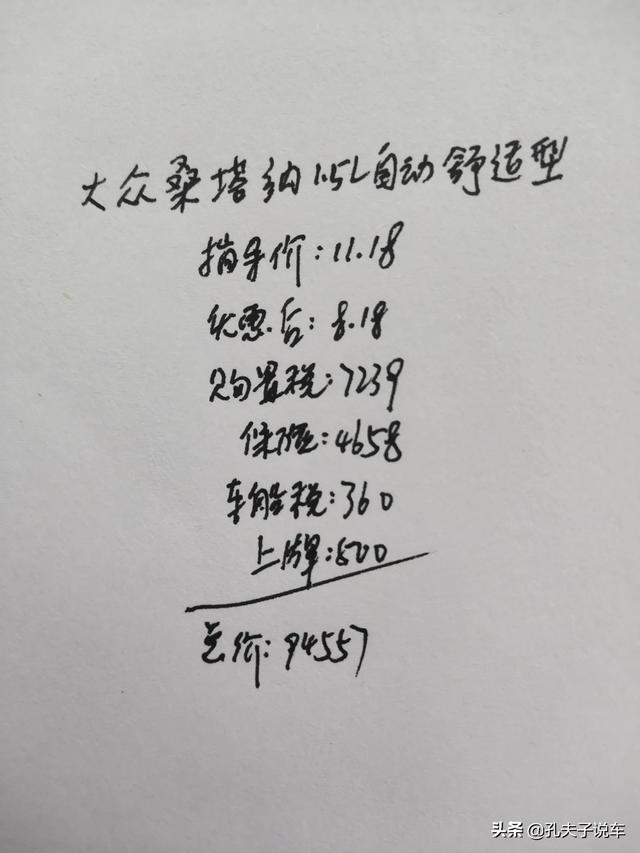 大众桑塔纳1.5L自动舒适型
指导价:11.18
优惠后:8.18
购置税:7239
保险:4658
车船税:360
上牌:500
总价:94557
头条 @孔夫子说车